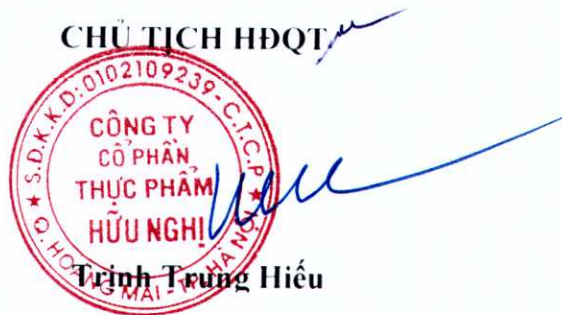 CHỦ TỊCH HĐQT
S.D.K.K.D:0102109239-C.T.C.P
CÔNG TY
CỔ PHẦN
THỰC PHẨM
HỮU NGHỊ
Q. HOÀNG MAI - TP. HÀ NỘI
Trịnh Trung Hiếu